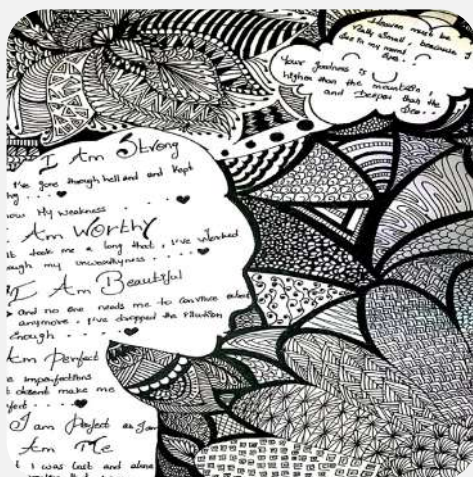 Heaven must be
really small, because I
see in my
Your goodness is
higher than the mountains,
and Deeper than the
Sea..
I Am Strong
I've gone through hell and and kept
My weakness
Am WORTHY
took me a long that, I've worked
my unworthyness
I Am Beautiful
and no one needs me to convince
anymore. I've dropped the
Enough
Am Perfect
imperfections
doesnt make me
I am Perfect as I am
Am Me
I was Lost and alone